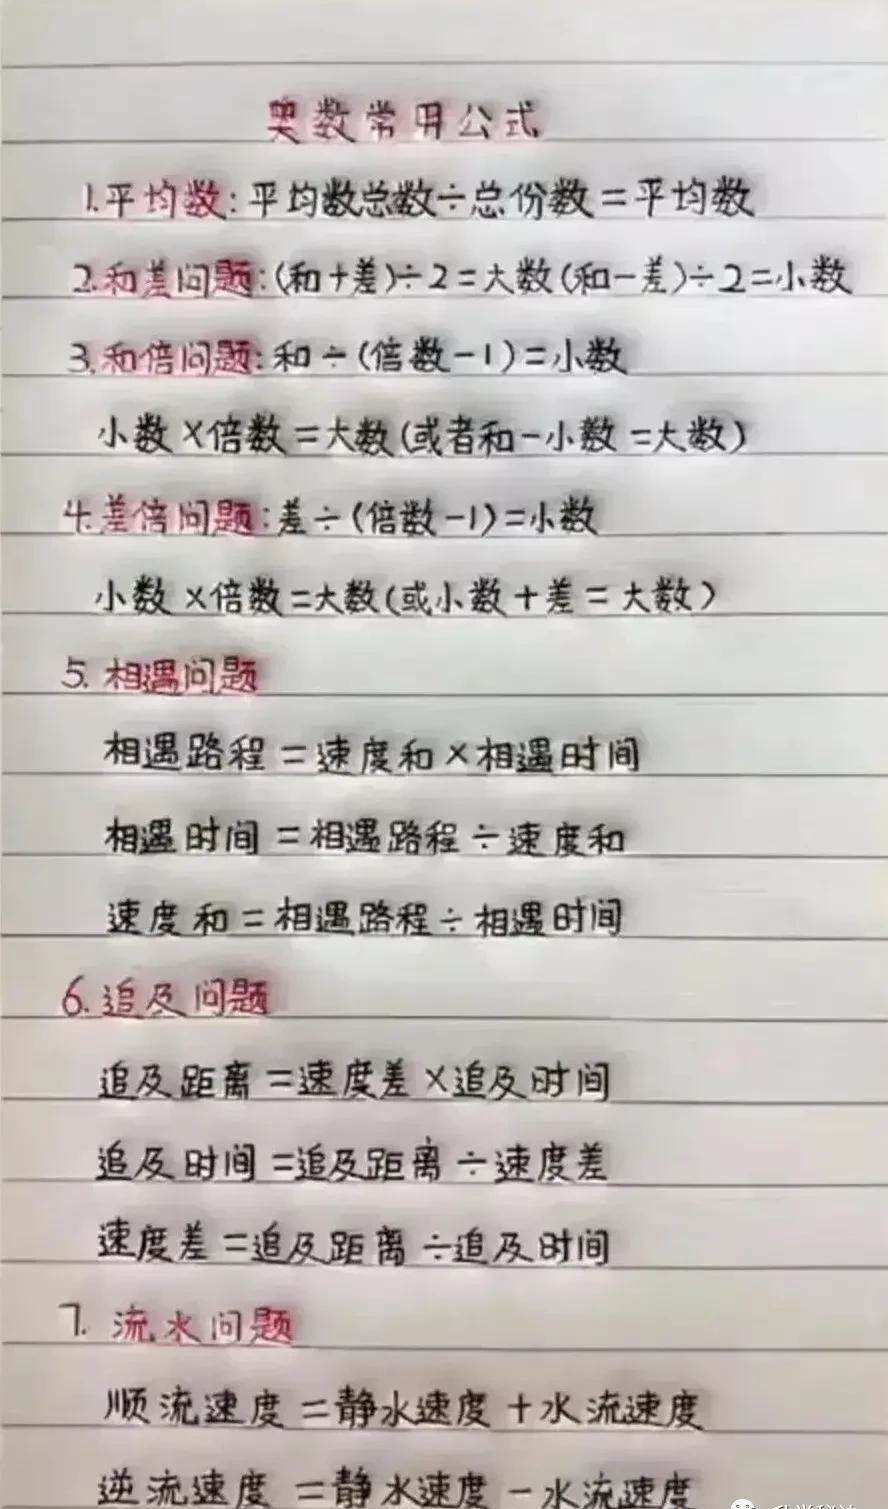 奥数常用公式
1.平均数:平均数总数÷总份数=平均数
2.和差问题:(和+差)÷2=大数(和-差)÷2=小数
3.和倍问题:和÷(倍数-1)=小数
小数×倍数=大数(或者和-小数=大数)
4.差倍问题:差÷(倍数-1)=小数
小数×倍数=大数(或小数+差=大数)
5.相遇问题
相遇路程=速度和×相遇时间
相遇时间=相遇路程÷速度和
速度和=相遇路程÷相遇时间
6.追及问题
追及距离=速度差×追及时间
追及时间=追及距离÷速度差
速度差=追及距离÷追及时间
7.流水问题
顺流速度=静水速度+水流速度
逆流速度=静水速度-水流速度